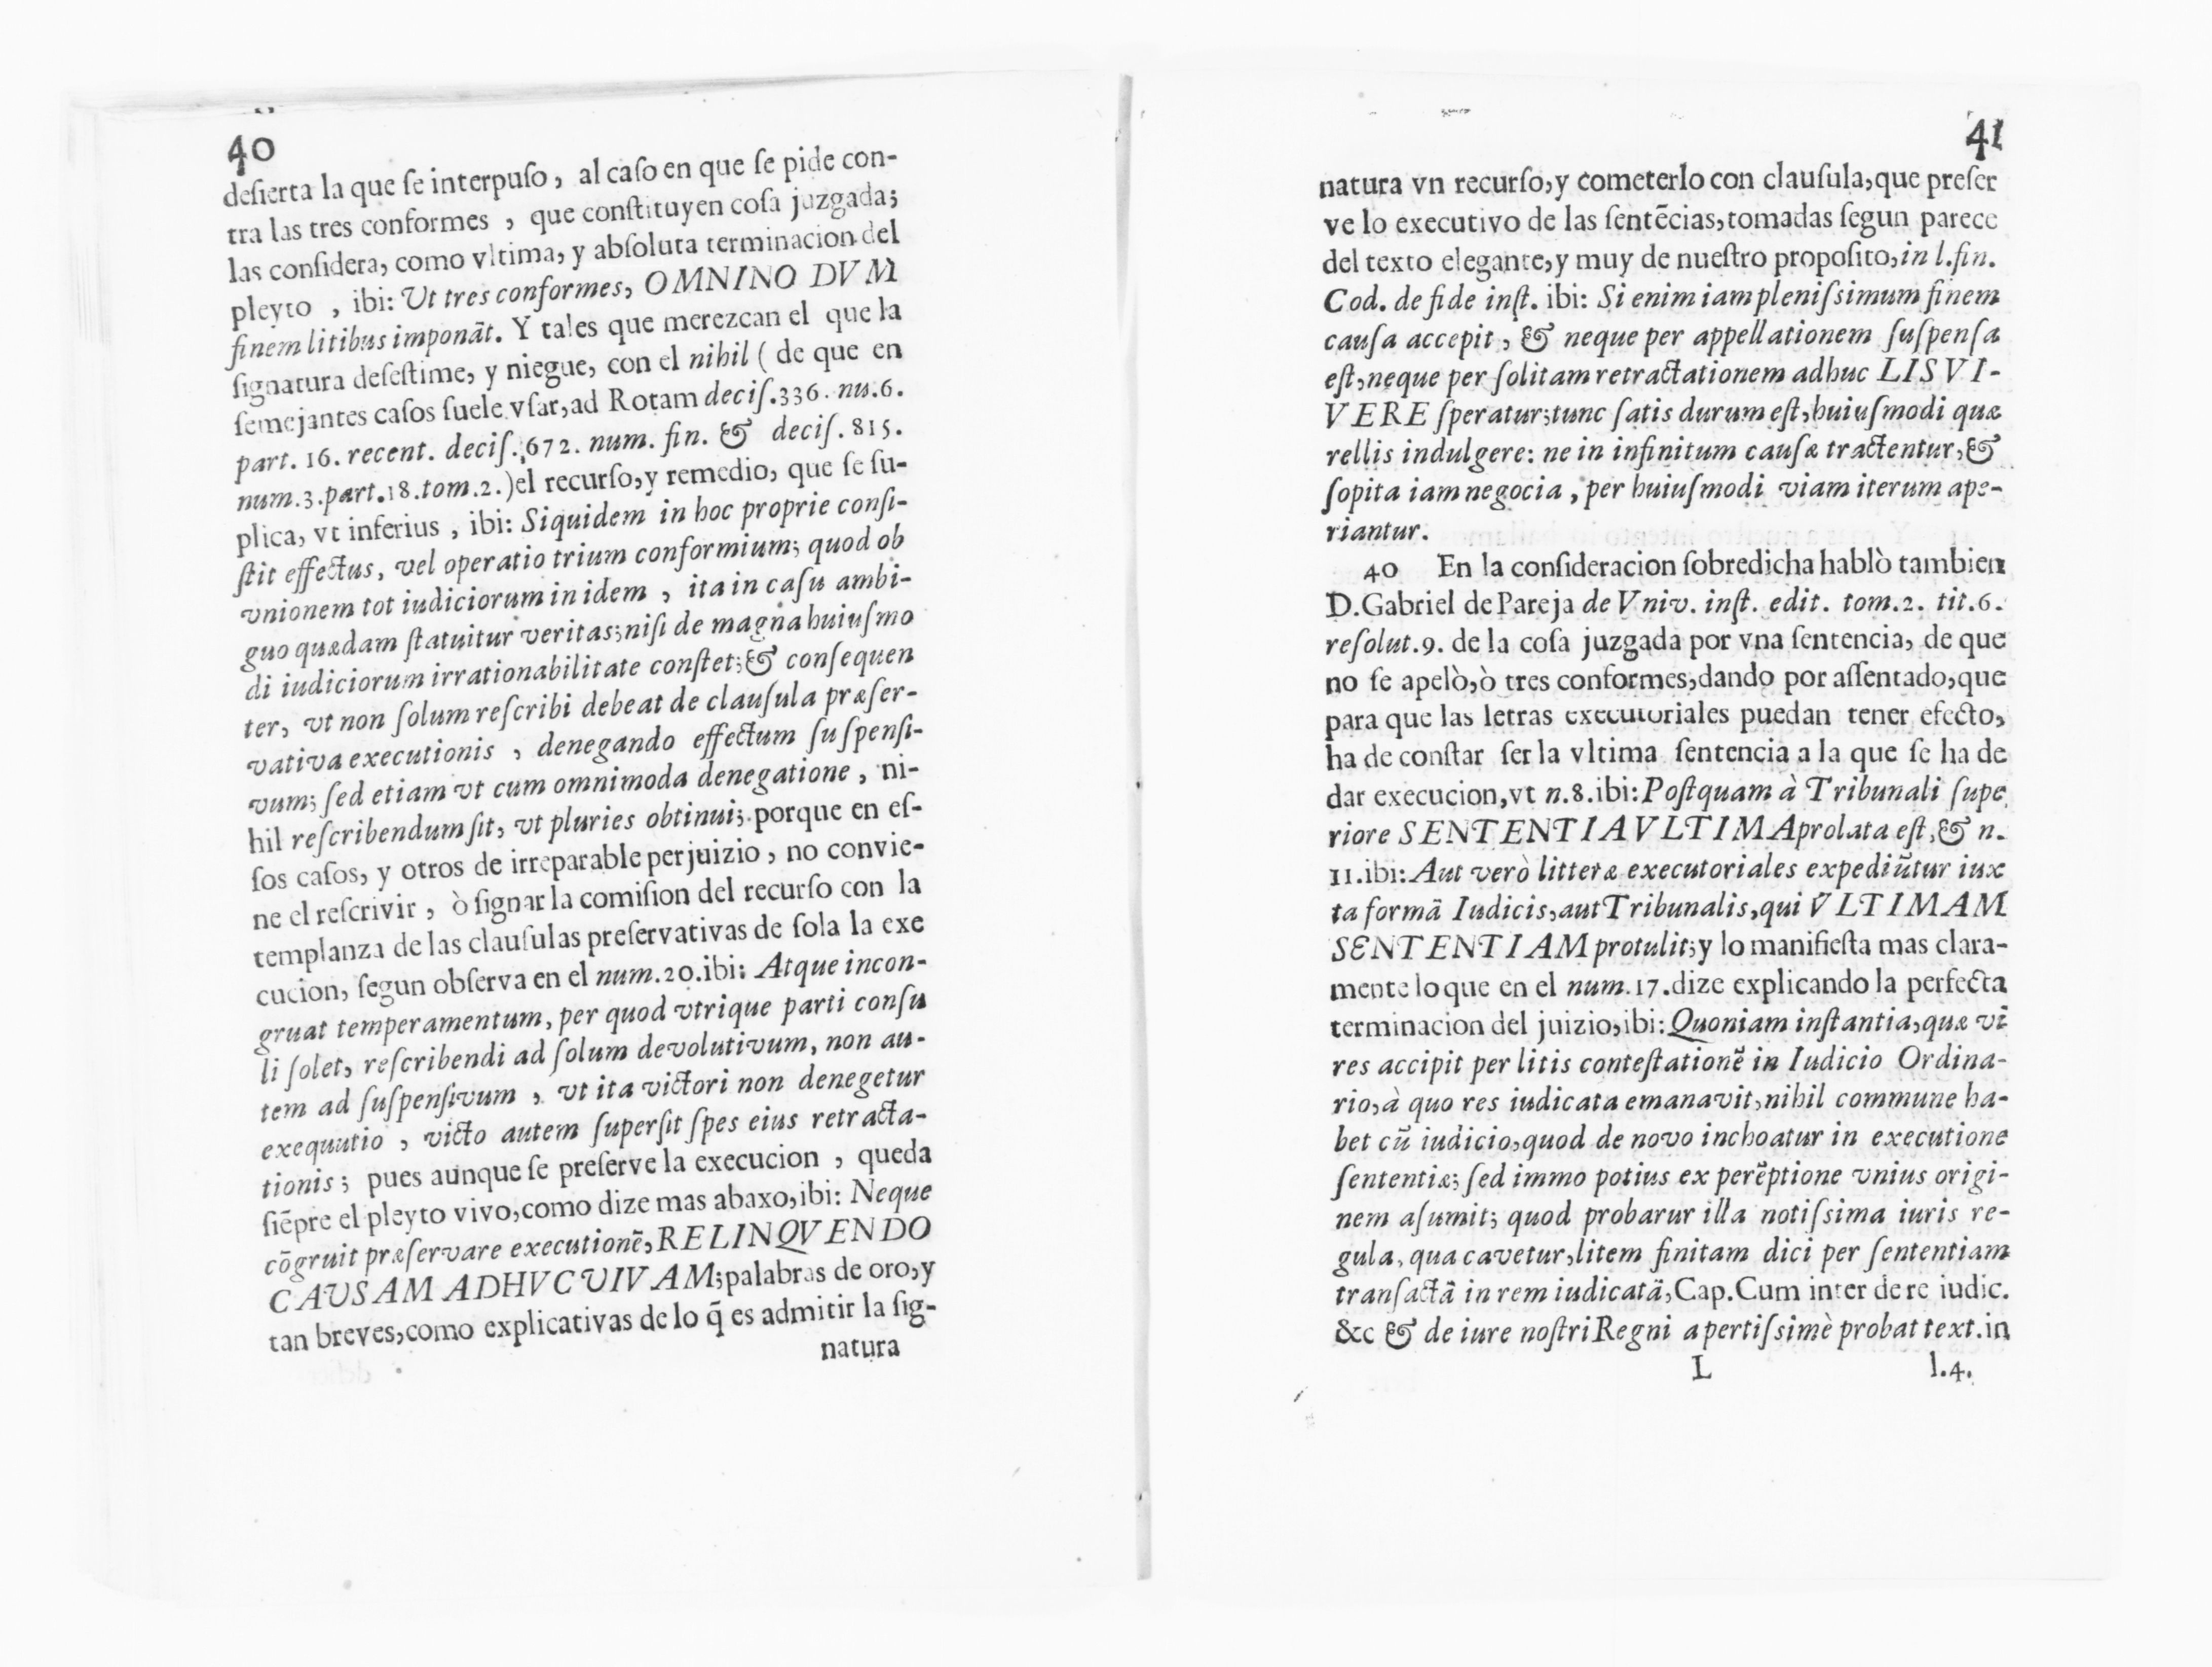 40
desierta la que ſe interpuſo, al caſo en que ſe pide con-
tra las tres conformes, que conſtituyen coſa juzgada;
las conſidera, como vltima, y abſoluta terminacion del
pleyto, ibi: Ut tres conformes, OMNINO DVM
finem litibus imponāt. Y tales que merezcan el que la
ſignatura deſeſtime, y niegue, con el nihil (de que en
ſemejantes caſos ſuele vſar, ad Rotam deciſ.336. nu.6.
part. 16. recent. deciſ. 672. num. fin. & deciſ. 815.
num.3.part.18.tom.2.) el recurſo, y remedio, que ſe ſu-
plica, vt inferius, ibi: Siquidem in hoc proprie conſi-
ſtit effectus, vel operatio trium conformium; quod ob
vnionem tot iudiciorum in idem, ita in caſu ambi-
guo quædam ſtatuitur veritas; niſi de magna huiuſmo
di iudiciorum irrationabilitate conſtet; & conſequen
ter, vt non ſolum reſcribi debeat de clauſula præſer-
vativa executionis, denegando effectum ſuſpenſi-
vum; ſed etiam vt cum omnimoda denegatione, ni-
hil reſcribendum ſit, vt pluries obtinui; porque en eſ-
ſos caſos, y otros de irreparable perjuizio, no convie-
ne el reſcrivir, ò ſignar la comiſion del recurſo con la
templanza de las clauſulas preſervativas de ſola la exe
cucion, ſegun obſerva en el num.20.ibi: Atque incon-
gruat temperamentum, per quod vtrique parti conſu
li ſolet, reſcribendi ad ſolum devolutivum, non au-
tem ad ſuſpenſivum, vt ita victori non denegetur
exequutio, victo autem ſuperſit ſpes eius retracta-
tionis; pues aunque ſe preſerve la execucion, queda
ſiēpre el pleyto vivo, como dize mas abaxo, ibi: Neque
cōgruit præſervare executionē, RELINQVENDO
CAUSAM ADHVC UIVAM; palabras de oro, y
tan breves, como explicativas de lo q̄ es admitir la ſig-
natura
41
natura vn recurſo, y cometerlo con clauſula, que preſer
ve lo executivo de las ſentēcias, tomadas ſegun parece
del texto elegante, y muy de nueſtro propoſito, in l.fin.
Cod. de fide inſt. ibi: Si enim iam pleniſsimum finem
cauſa accepit, & neque per appellationem ſuſpenſa
eſt, neque per ſolitam retractationem adhuc LIS VI-
VERE ſperatur; tunc ſatis durum eſt, huiuſmodi quæ
rellis indulgere: ne in infinitum cauſæ tractentur, &
ſopita iam negocia, per huiuſmodi viam iterum ape-
riantur.
40 En la conſideracion ſobredicha hablò tambien
D.Gabriel de Pareja de Vniv. inſt. edit. tom.2. tit.6.
reſolut.9. de la coſa juzgada por vna ſentencia, de que
no ſe apelò, ò tres conformes, dando por aſſentado, que
para que las letras executoriales puedan tener efecto,
ha de conſtar ſer la vltima ſentencia a la que ſe ha de
dar execucion, vt n.8.ibi: Poſtquam à Tribunali ſupe
riore SENTENTIA VLTIMA prolata eſt, & n.
11.ibi: Aut verò litteræ executoriales expediūtur iux
ta formā Iudicis, aut Tribunalis, qui VLTIMAM
SENTENTIAM protulit; y lo manifieſta mas clara-
mente lo que en el num.17.dize explicando la perfecta
terminacion del juizio, ibi: Quoniam inſtantia, quæ vi
res accipit per litis conteſtationē in Iudicio Ordina-
rio, à quo res iudicata emanavit, nihil commune ha-
bet cū iudicio, quod de novo inchoatur in executione
ſententiæ; ſed immo potius ex perēptione vnius origi-
nem aſumit; quod probarur illa notiſsima iuris re-
gula, qua cavetur, litem finitam dici per ſententiam
tranſactā in rem iudicatā, Cap.Cum inter de re iudic.
&c & de iure noſtri Regni apertiſsimè probat text.in
L l.4.